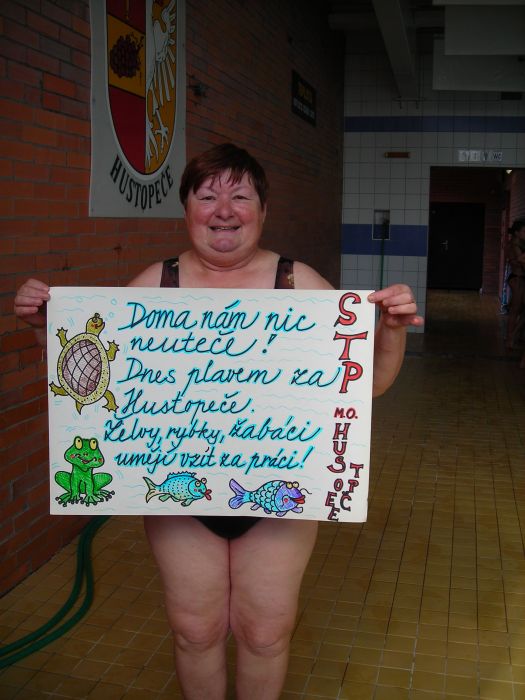 HUSTOPEČE
Doma nám nic
neuteče!
Dnes plavem za
Hustopeče.
Želvy, rybky, žabáci
umějí vzít za práci!
STP
M.O.
HUSTOPEČE
WC